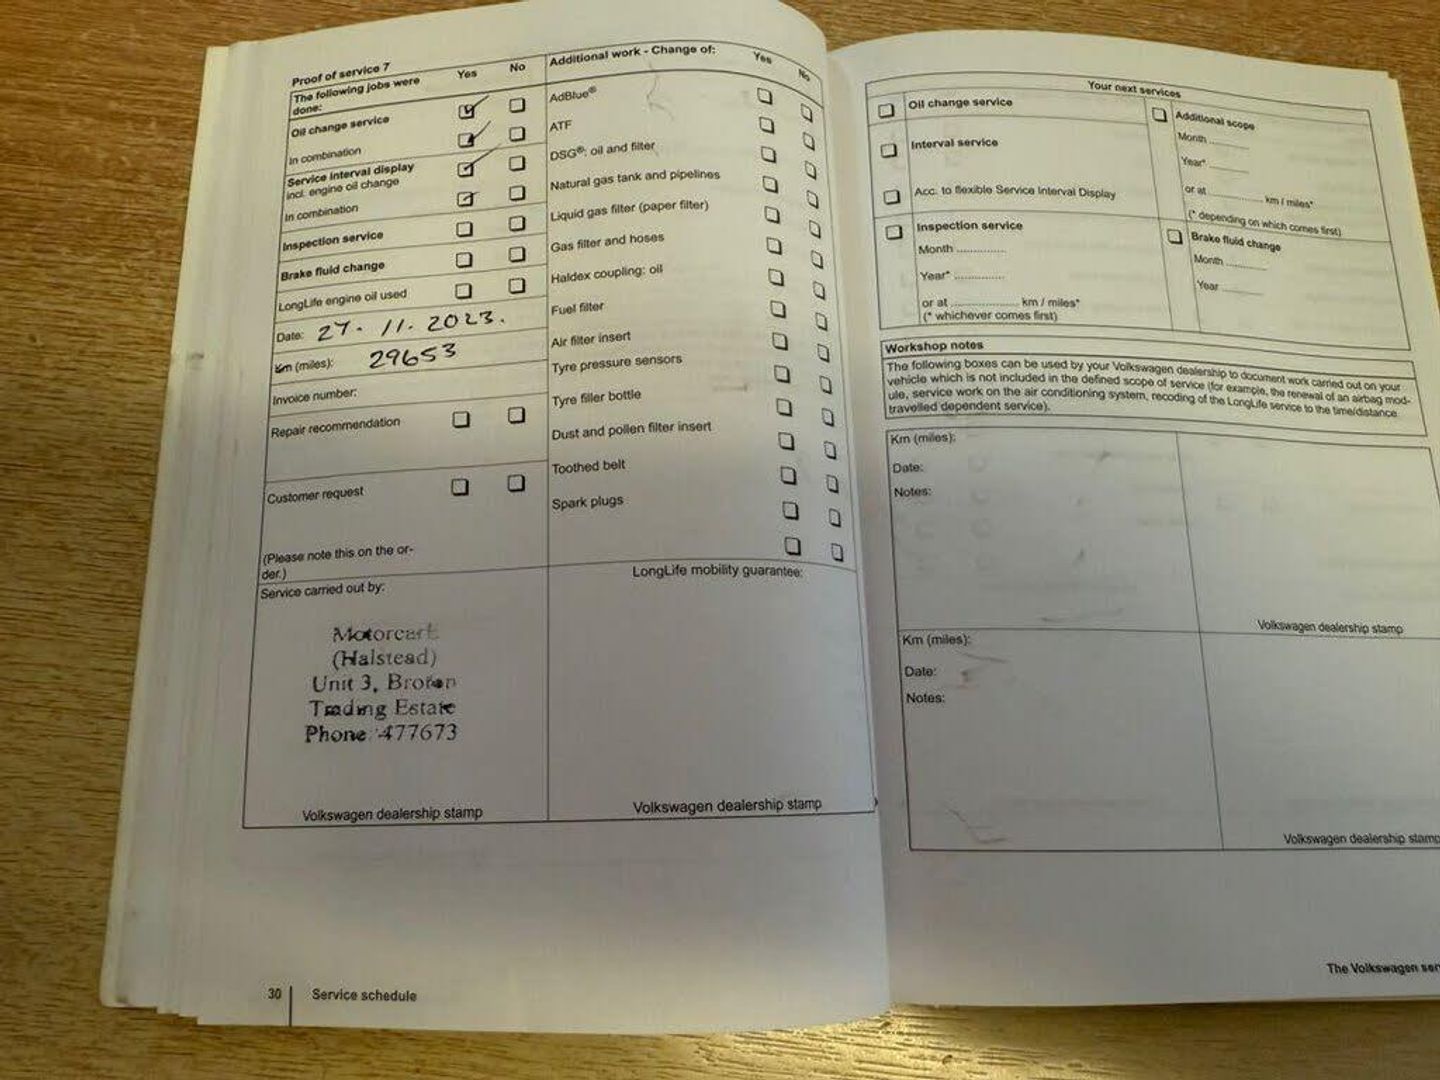 Proof of service 7
The following jobs were done:
Yes
No
Oil change service
In combination
Service interval display
incl. engine oil change
In combination
Inspection service
Brake fluid change
LongLife engine oil used
Date: 27. 11. 2023.
Km (miles): 29653
Invoice number:
Repair recommendation
Customer request
(Please note this on the or-
der.)
Service carried out by:
Motorcare
(Halstead)
Unit 3, Broton
Trading Estate
Phone: 477673
Volkswagen dealership stamp
Additional work - Change of:
Yes
No
AdBlue®
ATF
DSG®: oil and filter
Natural gas tank and pipelines
Liquid gas filter (paper filter)
Gas filter and hoses
Haldex coupling: oil
Fuel filter
Air filter insert
Tyre pressure sensors
Tyre filler bottle
Dust and pollen filter insert
Toothed belt
Spark plugs
LongLife mobility guarantee:
Volkswagen dealership stamp
30
Service schedule
Your next services
Oil change service
Interval service
Acc. to flexible Service Interval Display
Inspection service
Month ..............
Year* ..............
or at .................... km / miles*
(* whichever comes first)
Additional scope
Month ...........
Year* ...........
or at ............... km / miles*
(* depending on which comes first)
Brake fluid change
Month ...........
Year ...........
Workshop notes
The following boxes can be used by your Volkswagen dealership to document work carried out on your
vehicle which is not included in the defined scope of service (for example, the renewal of an airbag mod-
ule, service work on the air conditioning system, recoding of the LongLife service to the time/distance
travelled dependent service).
Km (miles):
Date:
Notes:
Volkswagen dealership stamp
Km (miles):
Date:
Notes:
Volkswagen dealership stamp
The Volkswagen ser